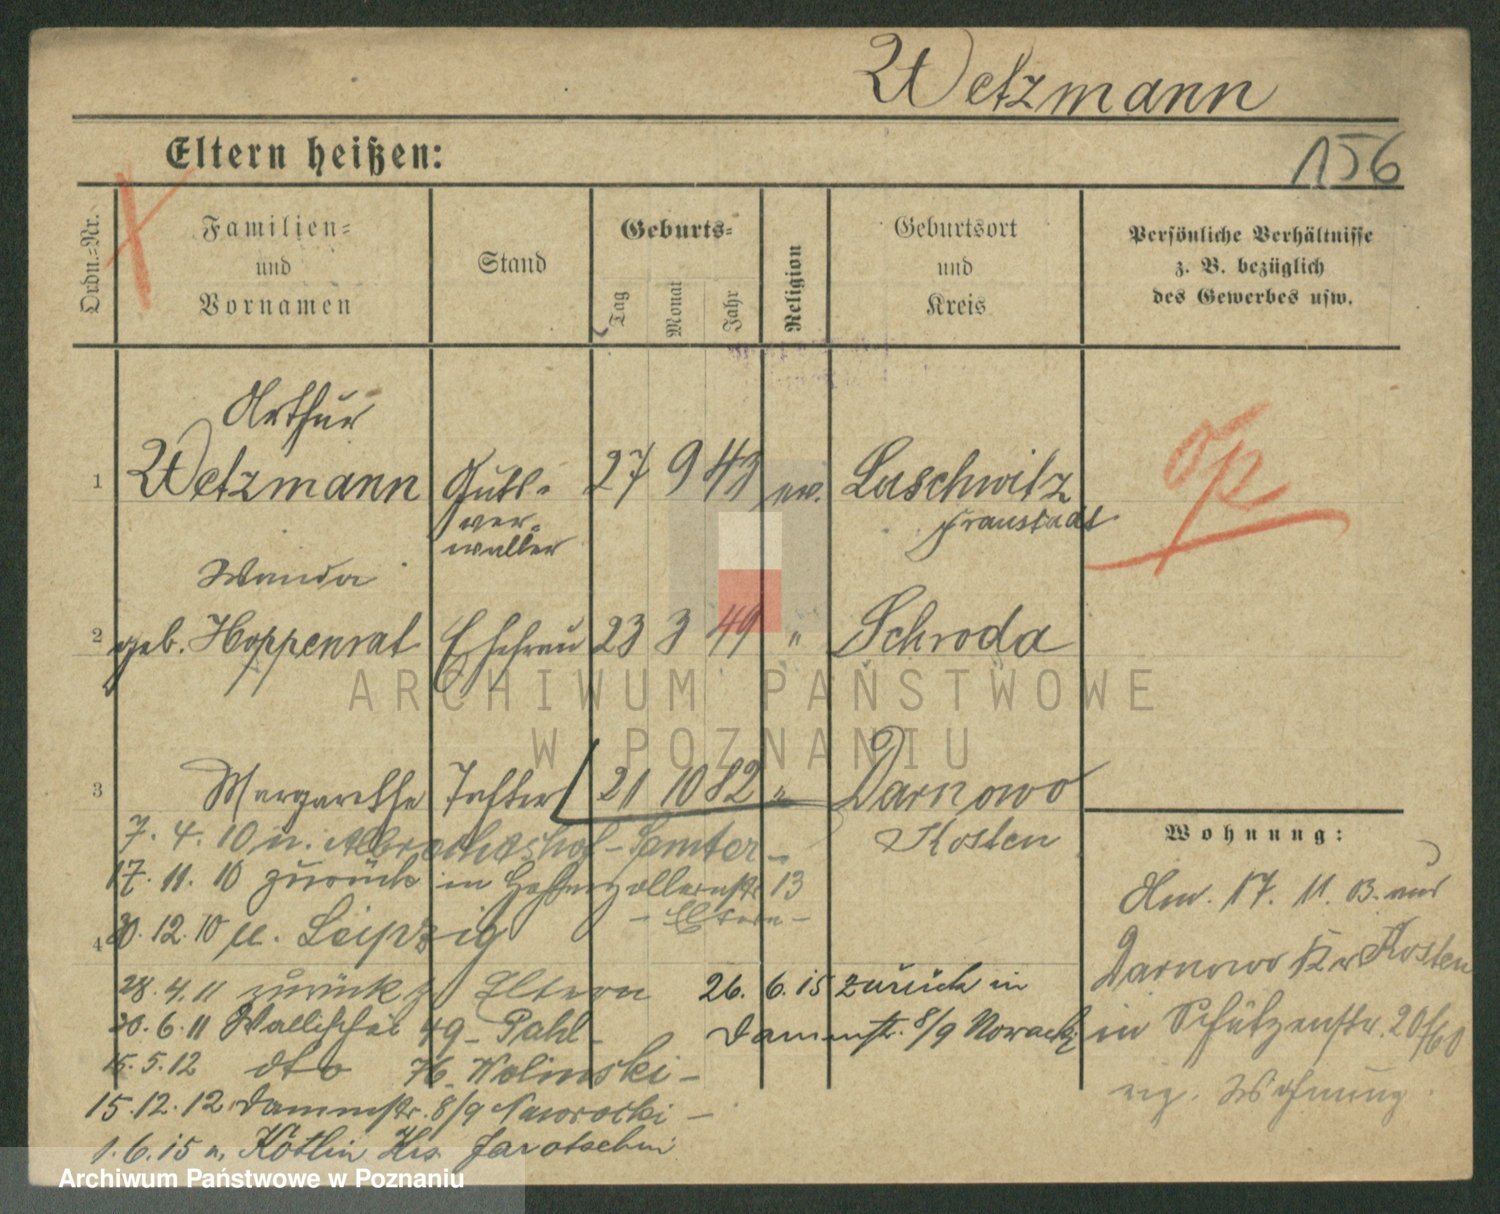 Wetzmann
Eltern heißen:
156
Ordn.-Nr.
Familien-
und
Vornamen
Stand
Geburts-
Tag
Monat
Jahr
Religion
Geburtsort
und
Kreis
Persönliche Verhältnisse
z. B. bezüglich
des Gewerbes usw.
Arthur
1 Wetzmann Guts- 27 9 43 ev. Luschwitz
ver- Fraustadt
walter
Wanda
2 geb. Hoppenrat Ehefrau 23 3 49 " Schroda
3 Margarethe Tochter 21 10 82 " Darnowo
Kosten
7. 4. 10 n. Albrechtshof - Samter -
17. 11. 10 zurück in Hohenzollernstr 13
- Eltern -
4
30. 12. 10 n. Leipzig
28. 4. 11 zurück z Eltern
20. 6. 11 Wallischei 49 - Pahl -
15. 5. 12 dto 76 - Wolinski -
15. 12. 12 Dammstr. 8/9 Naworocki -
1. 6. 15 n. Kotlin Krs. Jarotschin
26. 6. 15 zurück in
Dammstr. 8/9 Noracki
Op
Wohnung:
17. 11. 03. aus
Darnowo Kr Kosten
in Schützenstr. 20
eig. Wohnung
ARCHIWUM PAŃSTWOWE
W POZNANIU
Archiwum Państwowe w Poznaniu